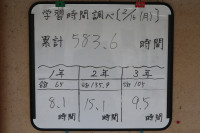 学習時間調べ〔2/16(月)〕
累計 583.6 時間
1年 2年 3年
8.1 15.1 9.5
時間 時間 時間